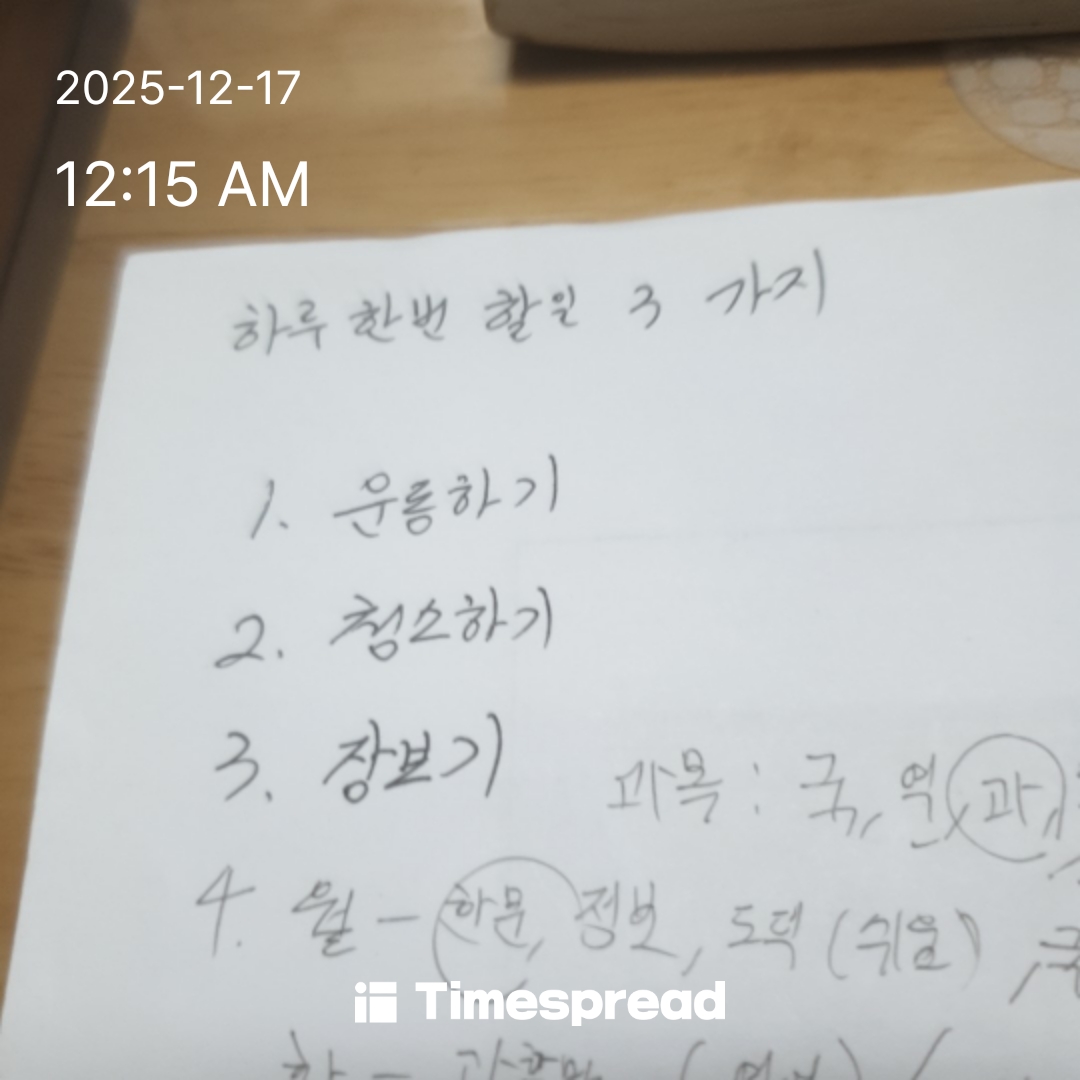 2025-12-17
12:15 AM
하루 한번 할일 3 가지
1. 운동하기
2. 청소하기
3. 장보기
과목 : 국, 역, 과,
4. 월 - 한문, 정보, 도덕 (쉬움)
Timespread